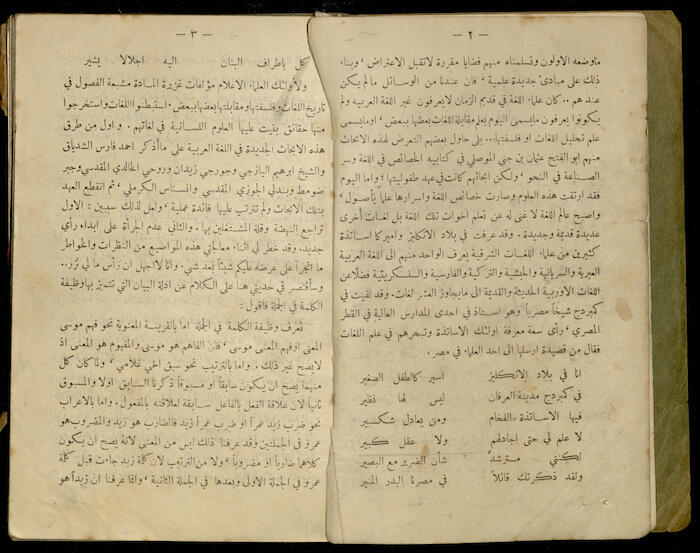 — ٢ —
ماوضعه الاولون وتسلمناه منهم قضايا مقررة لاتقبل الاعتراض ٬ وبناء
ذلك على مبادئ جديدة علمية ٬ فان عندنا من الوسائل مالم يكن
عندهم .. كان علماء اللغة في قديم الزمان لايعرفون غير اللغة العربيه ولم
يكونوا يعرفون مايسمى اليوم بعلم مقابلة اللغات بعضها ببعض ٬ اومايسمى
علم تحليل اللغات او فلسفتها... بلى حاول بعضهم التعرض لهذه الابحاث
منهم ابو الفتح عثمان بن جني الموصلي في كتابيه الخصائص في اللغة وسر
الصناعة في النحو ٬ ولكن ابحاثهم كانت في عهد طفوليتها ٬ واما اليوم
فقد ارتقت هذه العلوم وصارت خصائص اللغة واسرارها علماً بأصول ٬
واصبح عالم اللغة لا غنى له عن تعلم اخوات تلك اللغة بل لغات أخرى
عديدة قديمة وجديدة . وقد عرفت في بلاد الانكليز واميركا اساتذة
كثيرين من علماء اللغات الشرقية يعرف الواحد منهم الى اللغة العربية
العبرية والسريانية والحبشية والتركية والفارسية والسنسكريتية فضلا عن
اللغات الاوربية الحديثة والقديمة الى مايجاوز العشر لغات. وقد لقيت في
كمبردج شيخاً مصرياً وهو استاذ في احدى المدارس العالية في القطر
المصري ٬ رأى سعة معرفة اولئك الاساتذة وتبحرهم في علم اللغات
فقال من قصيدة ارسلها الى احد العلماء في مصر .
انا في بلاد الانكليز اسير كالطفل الصغير
في كمبردج مدينة العرفان ليس لها نظير
فيها الاساتذة الفخام ومن يعادل شكسبير
لا علم لي حتى اجادلهم ولا عقل كبير
لكنني مسترشدٌ شأن الضرير مع البصير
ولقد ذكرتك قائلاً في مصرنا البدر المنير
— ٣ —
كل باطراف البنان اليه اجلالا يشير
ولأولئك العلماء الاعلام مؤلفات غزيرة المادة مشبعة الفصول في
تاريخ اللغات وفلسفتها ومقابلتها بعضها ببعض . استبطنوا اللغات واستخرجوا
منها حقائق بنيت عليها العلوم اللسانية في لغاتهم . واول من طرق
هذه الابحاث الجديدة في اللغة العربية على مااذكر احمد فارس الشدياق
والشيخ ابرهيم اليازجي وجورجي زيدان وروحي الخالدي المقدسي وجبر
ضومط وبندلي الجوزي المقدسي وانستاس الكرملي ٬ ثم انقطع العهد
بتلك الابحاث ولم تترتب عليها فائدة عملية ٬ ولعل لذلك سببين : الاول
تراجع النهضة وقلة المشتغلين بها . والثاني عدم الجرأة على ابداء رأي
جديد. وقد خطر لي اثناء معالجتي هذه المواضيع من النظرات والخواطر
ما اتجرأ على عرضه عليكم شيئاً بعد شيء . وانا لااجهل ان رأس ما لي نزر..
وسأقتصر في حديثي هنا على الكلام عن ادلة البيان التي تتميز بها وظيفة
الكلمة في الجملة فاقول :
تعرف وظيفة الكلمة في الجملة اما بالقرينة المعنوية نحو فهم موسى
المعنى اوفهم المعنى موسى ٬ فان الفاهم هو موسى والمفهوم هو المعنى اذ
لايصح غير ذلك . واما بالترتيب نحو سبق اخي غلامي ٬ ولما كان كل
منهما يصح ان يكون سابقاً او مسبوقاً ذكرنا السابق اولا والمسبوق
ثانياً لان علاقة الفعل بالفاعل سابقة لعلاقته بالمفعول. واما بالاعراب
نحو ضرب زيد عمراً او ضرب عمراً زيد فالضارب هو زيد والمضروب هو
عمرو في الجملتين وقد عرفنا ذلك ليس من المعنى لانه يصح ان يكون
كلاهما ضارباً او مضروباً ٬ ولا من الترتيب لان كلمة زيد جاءت قبل كلمة
عمرو في الجملة الاولى وبعدها في الجملة الثانية ٬ وانما عرفنا ان زيداً هو